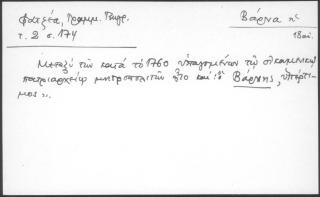 Φατσέα, Γραμμ. Γεωγρ.
τ. 2 σ. 174
Βάρνα
18 αι.
Μεταξύ τῶν κατά τό 1760 ὑπαγομένων τῷ οἰκουμενικῷ
πατριαρχείῳ μητροπολιτῶν ἦτο καί: "ὁ Βάρνης, ὑπέρτι-
μος".